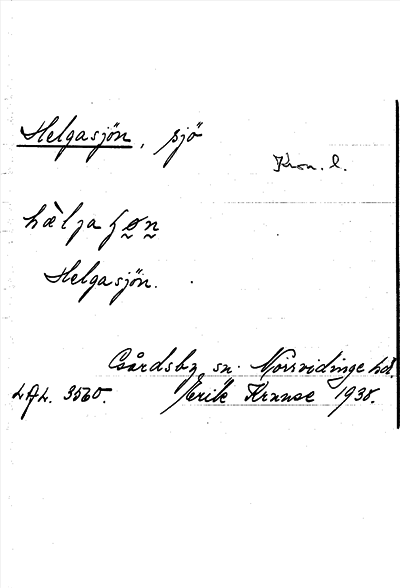 Helgasjön, sjö
Kron. l.
hæ̀ljaʃøn
Helgasjön.
Gårdsby sn. Norrvidinge hd.
LAL. 3560. Erik Kruuse 1938.